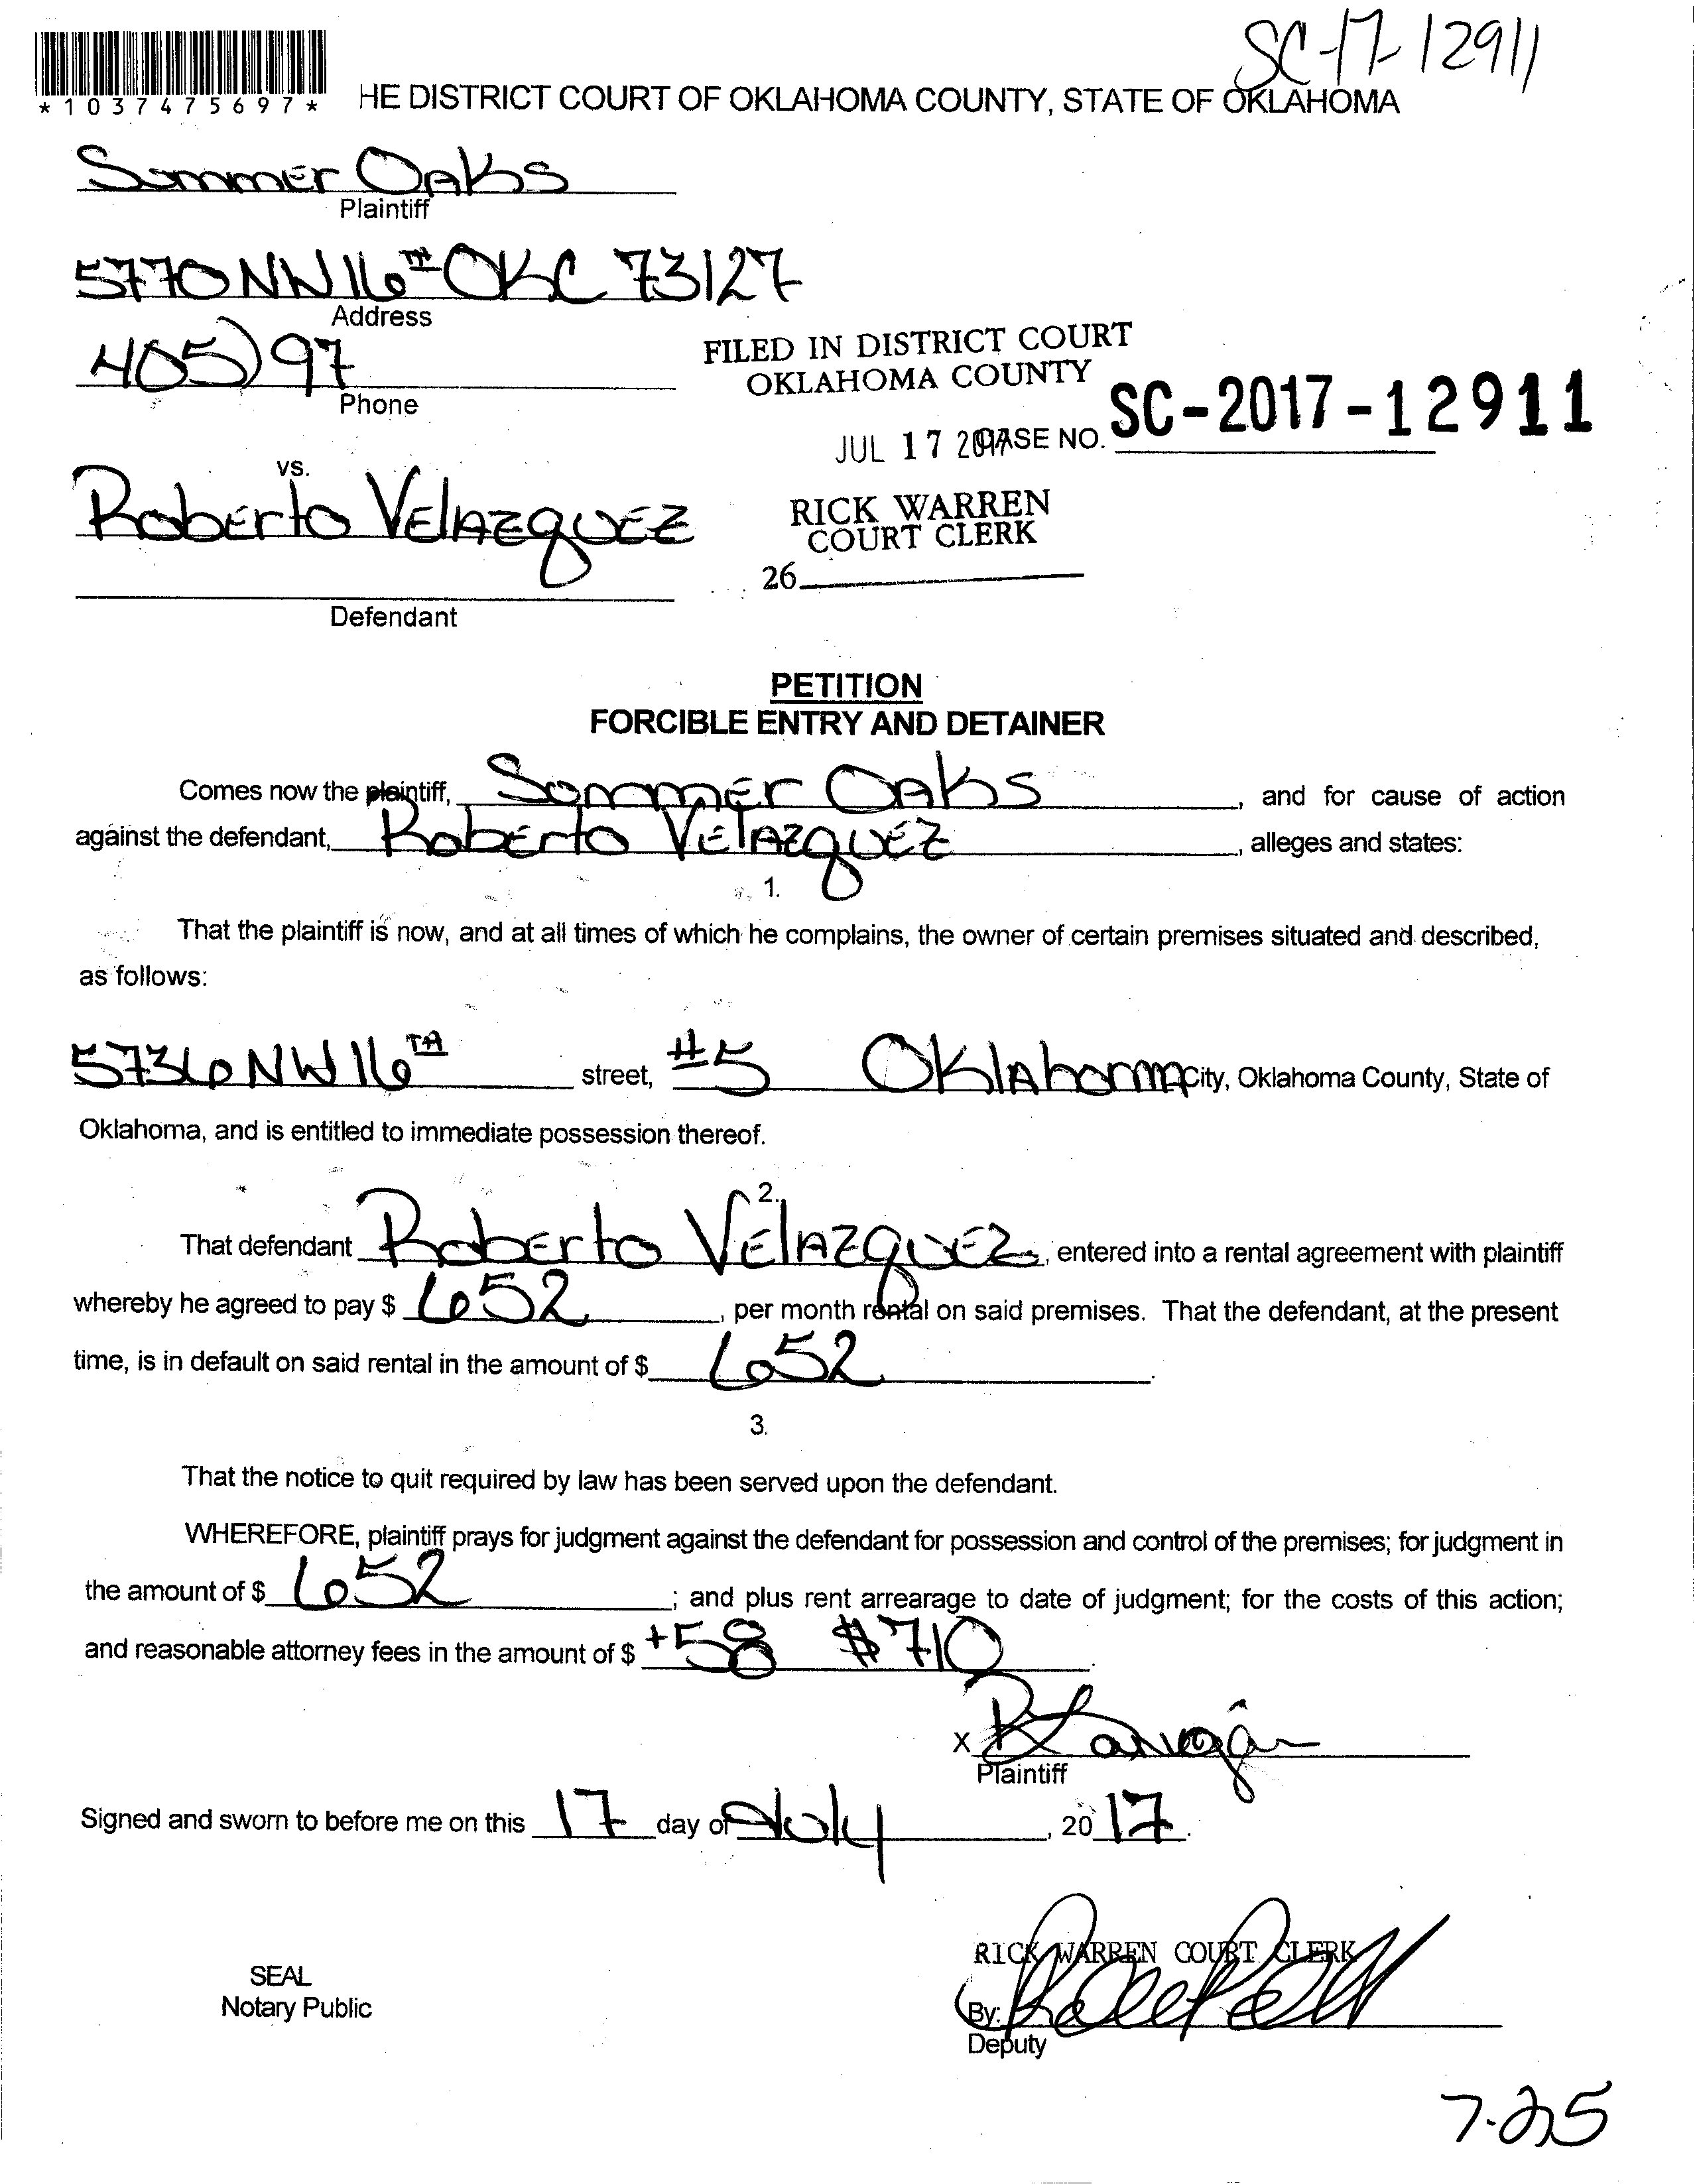 SC-17-12911
*1037475697*
HE DISTRICT COURT OF OKLAHOMA COUNTY, STATE OF OKLAHOMA
Summer Oaks
Plaintiff
5770 NW 16TH OKC 73127
Address
405) 97
Phone
FILED IN DISTRICT COURT
OKLAHOMA COUNTY
JUL 17 2017 CASE NO. SC-2017-12911
vs.
Roberto Velazquez
RICK WARREN
COURT CLERK
26
Defendant
PETITION
FORCIBLE ENTRY AND DETAINER
Comes now the plaintiff, Sommer Oaks, and for cause of action
against the defendant, Roberto Velazquez, alleges and states:
1.
That the plaintiff is now, and at all times of which he complains, the owner of certain premises situated and described,
as follows:
5736 NW 16TH street, #5 Oklahoma City, Oklahoma County, State of
Oklahoma, and is entitled to immediate possession thereof.
2.
That defendant Roberto Velazquez, entered into a rental agreement with plaintiff
whereby he agreed to pay $ 652, per month rental on said premises. That the defendant, at the present
time, is in default on said rental in the amount of $ 652.
3.
That the notice to quit required by law has been served upon the defendant.
WHEREFORE, plaintiff prays for judgment against the defendant for possession and control of the premises; for judgment in
the amount of $ 652; and plus rent arrearage to date of judgment; for the costs of this action;
and reasonable attorney fees in the amount of $ +58 $710.
X
Plaintiff
Signed and sworn to before me on this 17 day of July, 2017.
RICK WARREN COURT CLERK
SEAL
Notary Public
By:
Deputy
7-25